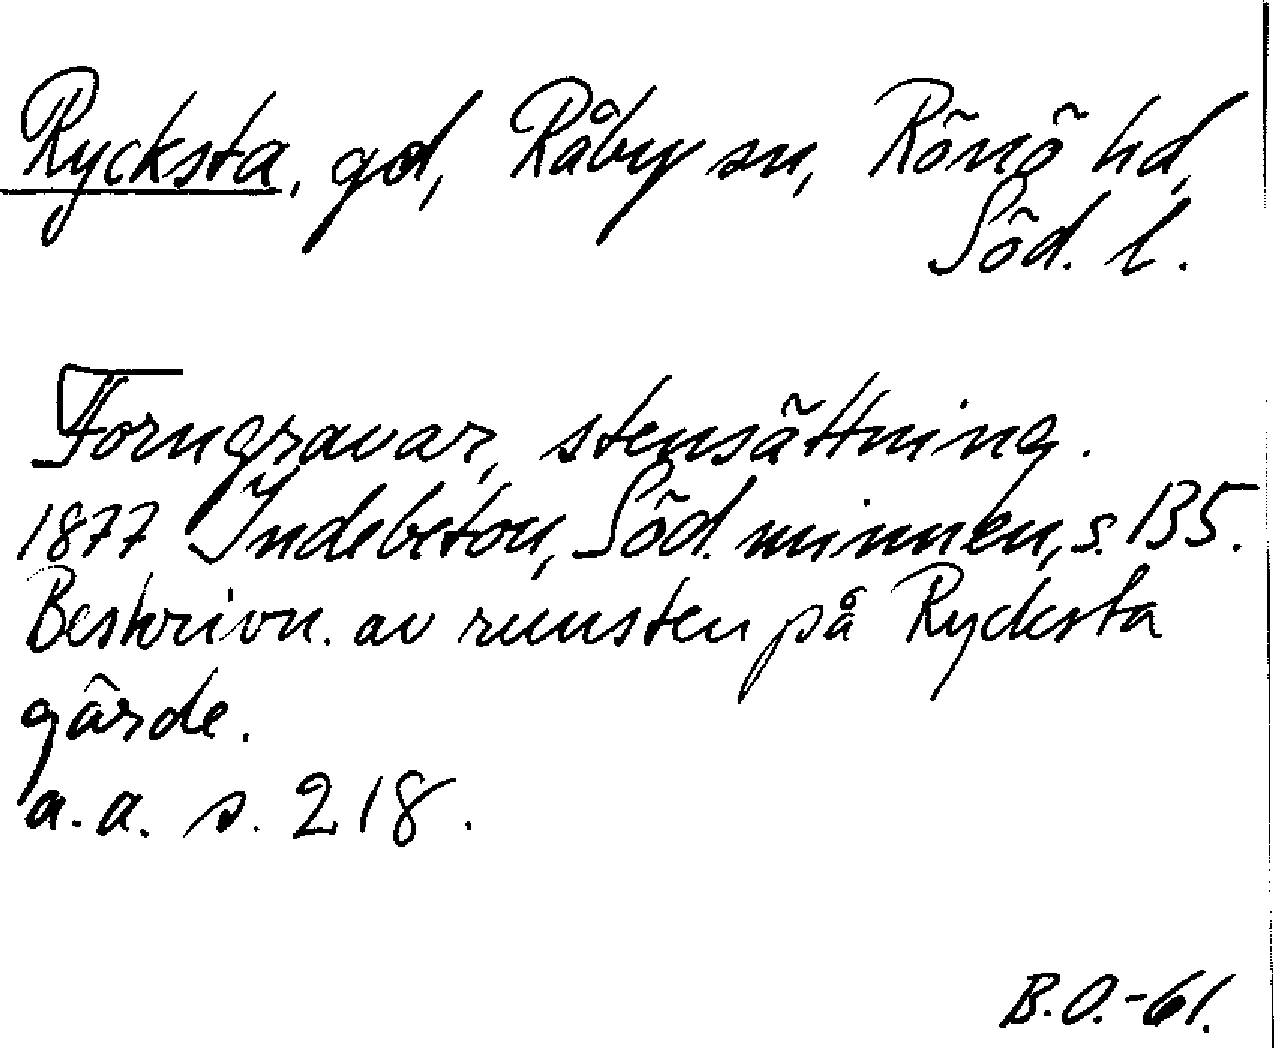 Rycksta, gd, Råby sn, Rönö hd,
Söd. l.
Forngravar, stensättning.
1877 Indebetou, Söd. minnen, s. 135.
Beskrivn. av runsten på Rycksta
gärde.
a.a. s. 218.
B.O.-61.